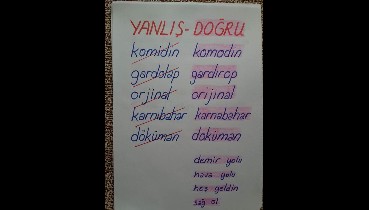 YANLIŞ - DOĞRU
komidin komodin
gardolap gardırop
orjinal orijinal
karnıbahar karnabahar
döküman doküman
demir yolu
hava yolu
hoş geldin
sağ ol